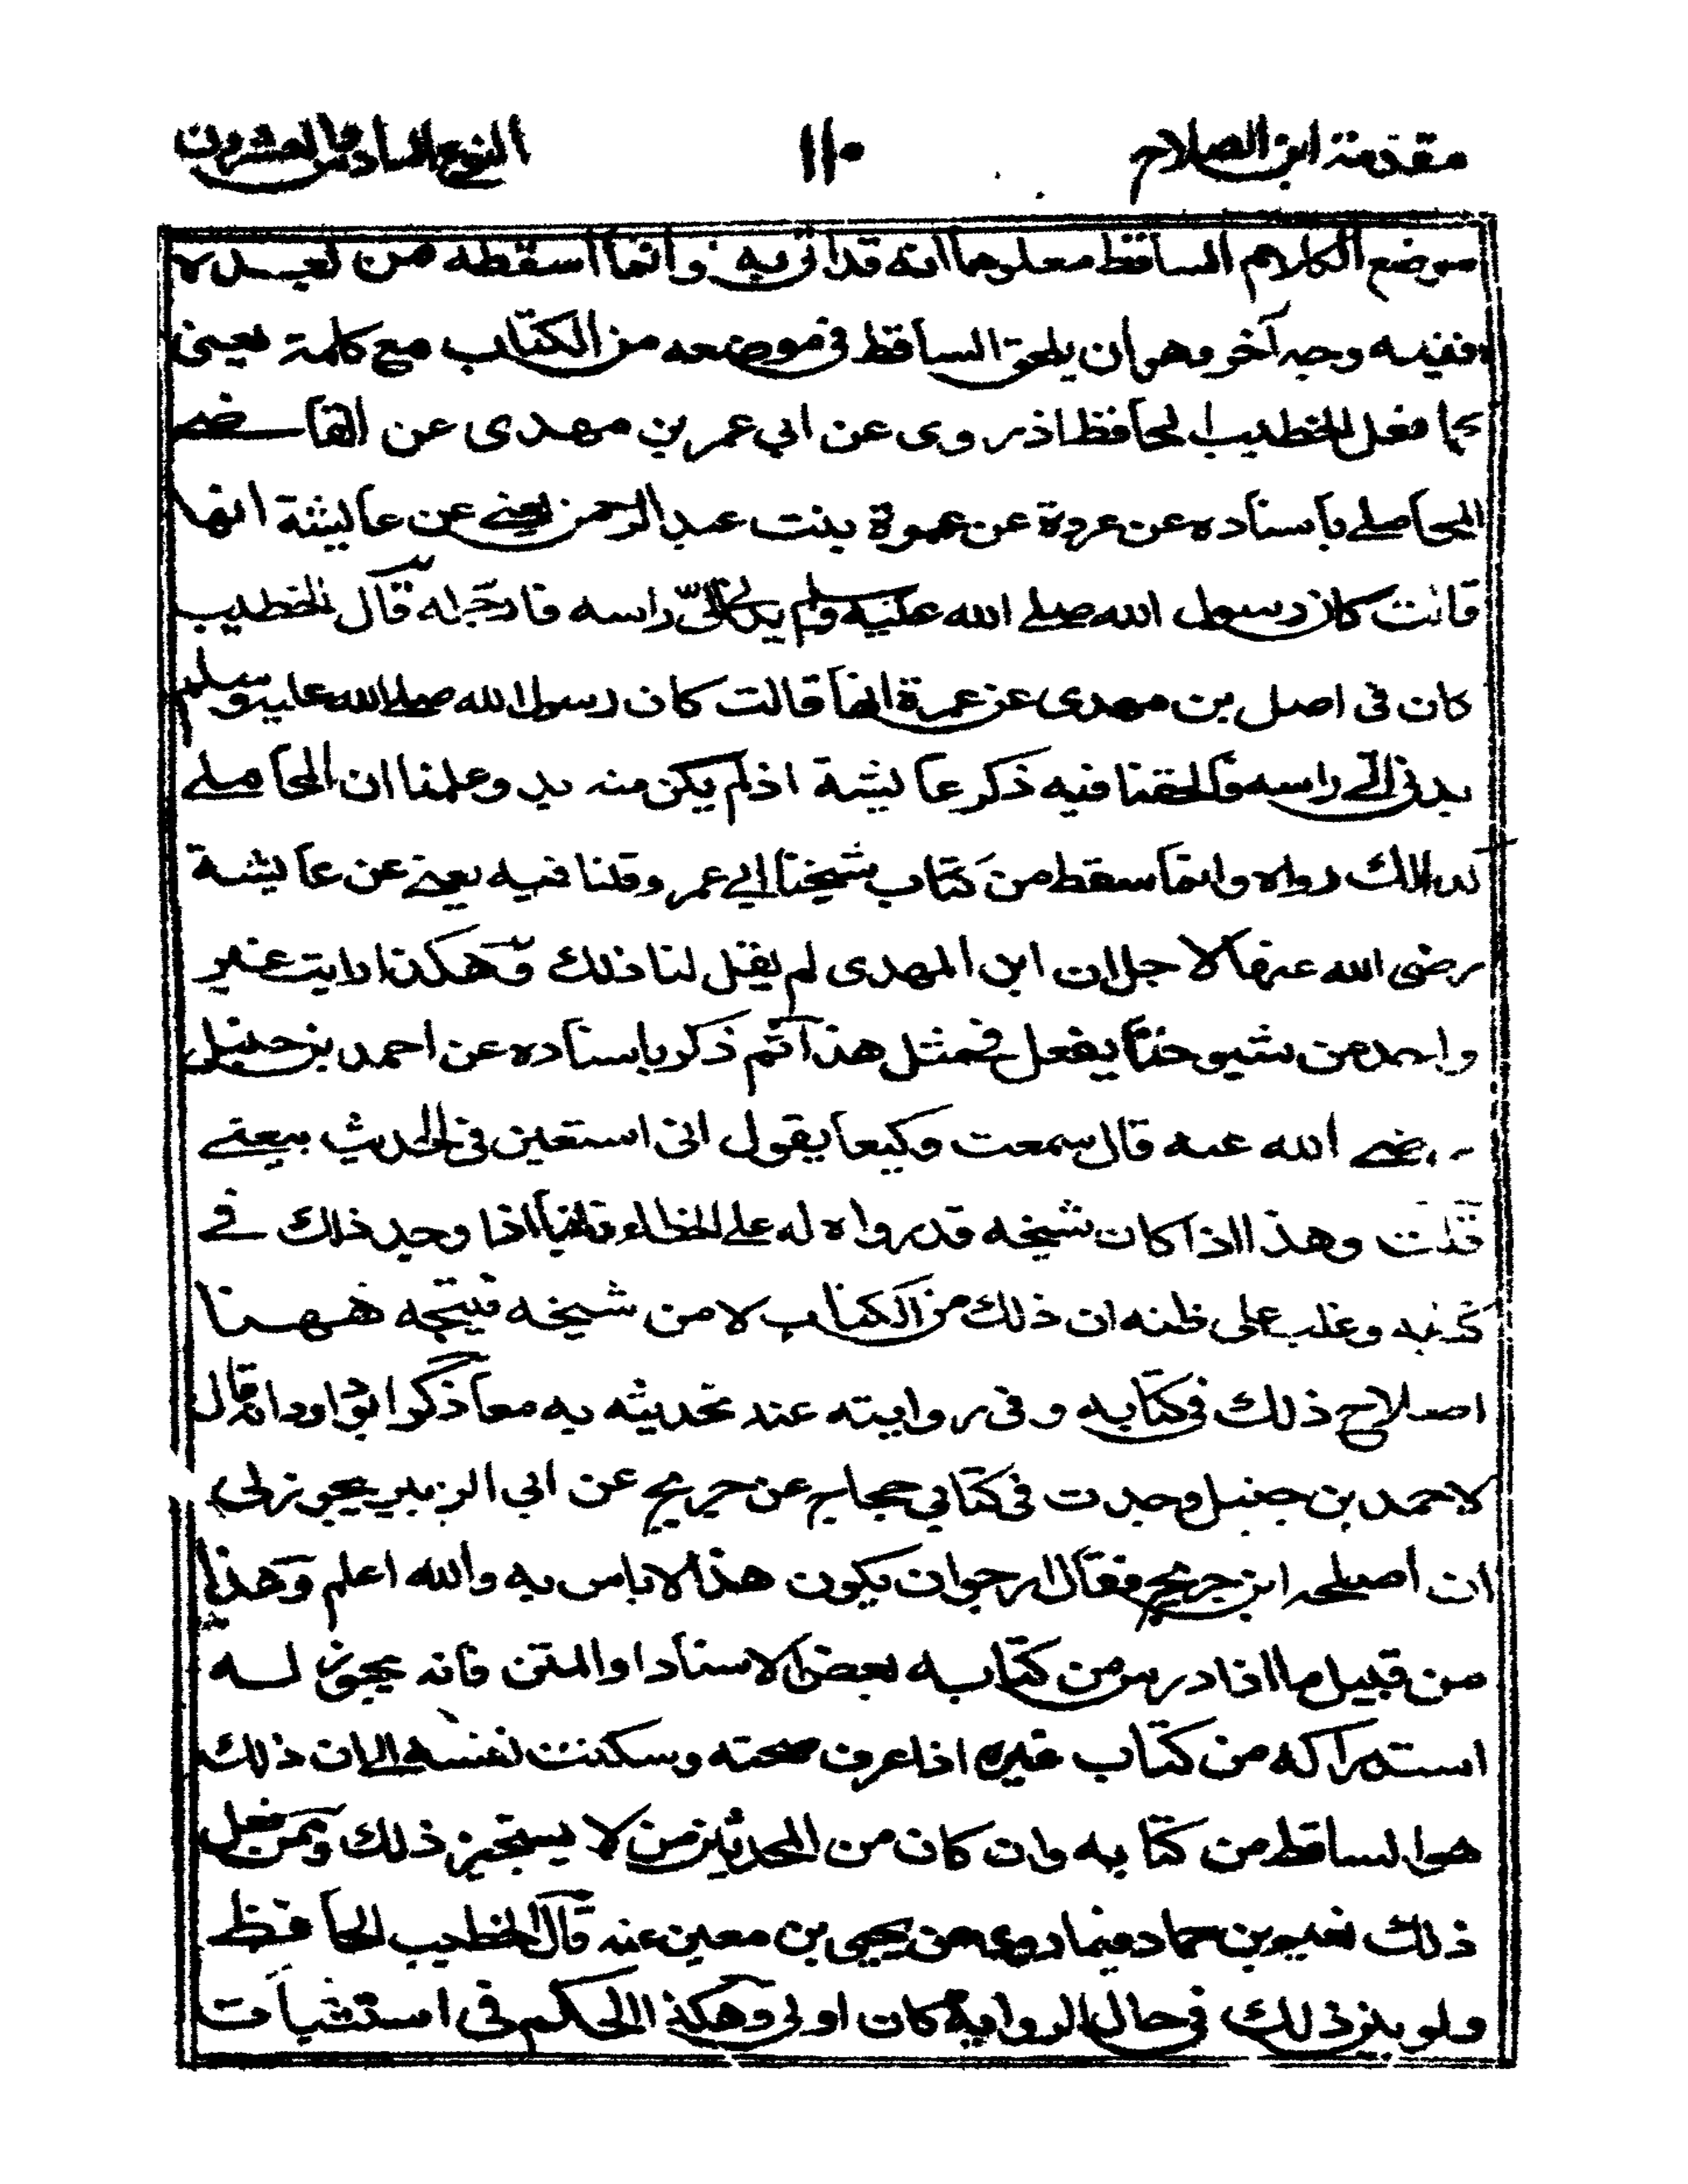 مقدمة ابن الصلاح ١١٠ النوع السادس والعشرون
موضع الكلام الساقط معلوما انه قد اتى به وانما اسقطه من بعده
ففيه وجه آخر وهو ان يلحق الساقط في موضعه من الكتاب مع كلمة يعني
كما فعل الخطيب الحافظ اذ روى عن ابي عمر بن مهدى عن القاضے
المحاملے باسناده عن عروة عن عمرة بنت عبد الرحمن يعنے عن عايشة انها
قالت كان رسول الله صلے الله عليه وسلم يدني الىّ راسه فارجله قال الخطيب
كان فى اصل بن مهدى عن عمرة انها قالت كان رسول الله صلے الله عليه وسلم
يدنى الے راسه فالحقنا فيه ذكر عايشة اذ لم يكن منه بد وعلمنا ان المحاملے
كذلك رواه وانما سقط من كتاب شيخنا ابي عمر وقلنا فيه يعنے عن عايشة
رضى الله عنها لاجل ان ابن المهدى لم يقل لنا ذلك وهكذا رايت غير
واحد من شيوخنا يفعل فى مثل هذا ثم ذكر باسناده عن احمد بن حنبل
رضے الله عنه قال سمعت وكيعا يقول انى استعين فى الحديث بيعنے
قلت وهذا اذا كان شيخه قد رواه له على الخطاء فاما اذا وجد ذلك فے
كتابه وغلب على ظنه ان ذلك من الكتاب لا من شيخه فيتجه ههنا
اصلاح ذلك فى كتابه وفى روايته عند تحديثه به معا ذكر ابو داود انه قال
لاحمد بن حنبل وجدت فى كتابي حجاج عن جريج عن ابي الزبير يجوز لى
ان اصلحه ابن جريج فقال ارجو ان يكون هذا لا باس به والله اعلم وهذا
من قبيل ما اذا درس من كتابه بعض الاسناد او المتن فانه يجوز له
استدراكه من كتاب غيره اذا عرف صحته وسكنت نفسه الے ان ذلك
هو الساقط من كتابه وان كان من المحدثين من لا يستجيز ذلك وممن فعل
ذلك نعيم بن حماد فيما روى عن يحيى بن معين عنه قال الخطيب الحافظ
ولو بين ذلك فى حال الرواية كان اولى وهكذا الحكم فى استثبات